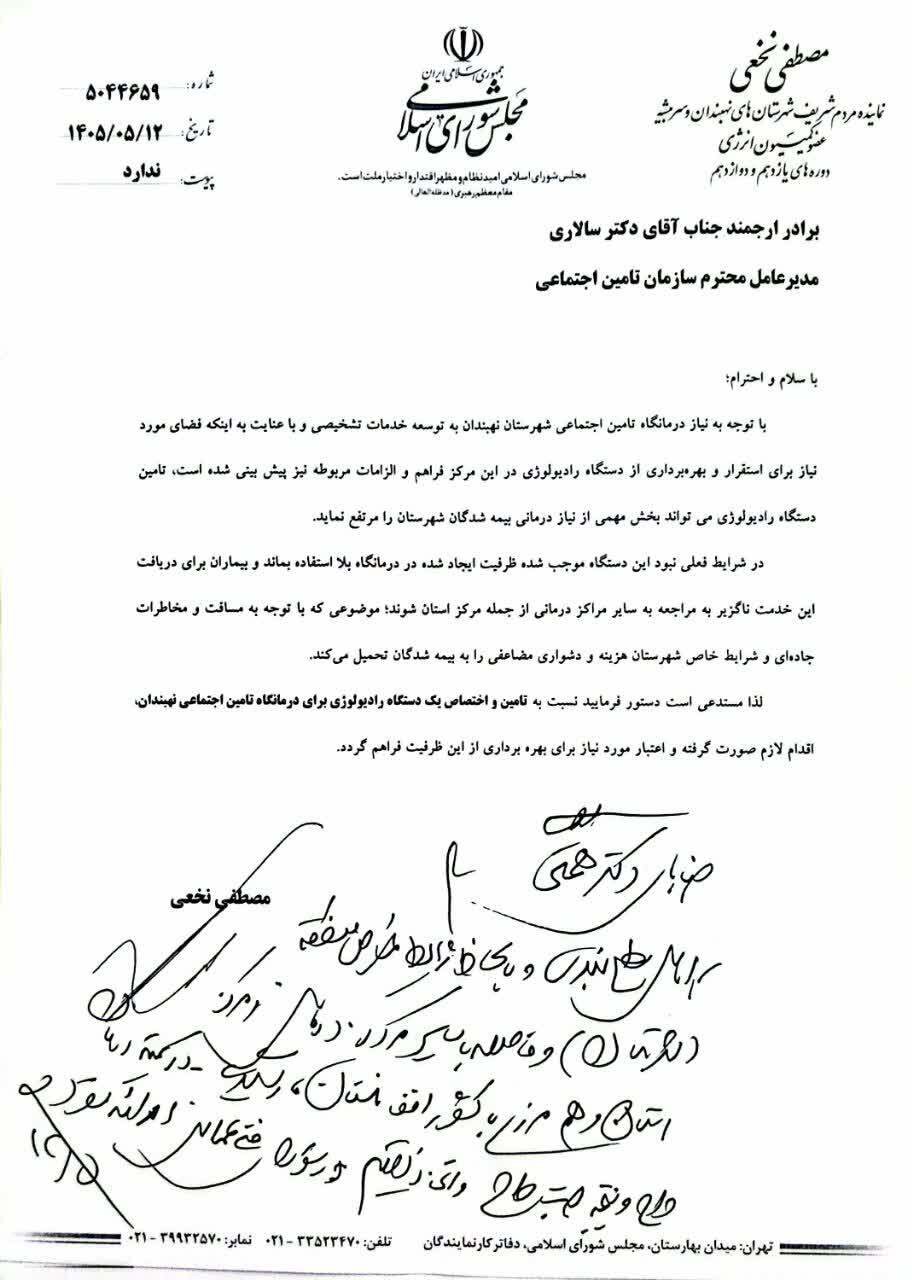 مصطفی نخعی
نماینده مردم شریف شهرستان های نهبندان و سربیشه
عضو کمیسیون انرژی
دوره های یازدهم و دوازدهم
جمهوری اسلامی ایران
مجلس شورای اسلامی
مجلس شورای اسلامی امید نظام و مظهر اقتدار و اختیار ملت است.
مقام معظم رهبری (مدظله العالی)
شماره: ۵۰۴۴۶۵۹
تاریخ: ۱۴۰۵/۰۵/۱۲
پیوست: ندارد
برادر ارجمند جناب آقای دکتر سالاری
مدیرعامل محترم سازمان تامین اجتماعی
با سلام و احترام؛
با توجه به نیاز درمانگاه تامین اجتماعی شهرستان نهبندان به توسعه خدمات تشخیصی و با عنایت به اینکه فضای مورد
نیاز برای استقرار و بهره‌برداری از دستگاه رادیولوژی در این مرکز فراهم و الزامات مربوطه نیز پیش بینی شده است، تامین
دستگاه رادیولوژی می تواند بخش مهمی از نیاز درمانی بیمه شدگان شهرستان را مرتفع نماید.
در شرایط فعلی نبود این دستگاه موجب شده ظرفیت ایجاد شده در درمانگاه بلا استفاده بماند و بیماران برای دریافت
این خدمت ناگزیر به مراجعه به سایر مراکز درمانی از جمله مرکز استان شوند؛ موضوعی که با توجه به مسافت و مخاطرات
جاده‌ای و شرایط خاص شهرستان هزینه و دشواری مضاعفی را به بیمه شدگان تحمیل می‌کند.
لذا مستدعی است دستور فرمایید نسبت به تامین و اختصاص یک دستگاه رادیولوژی برای درمانگاه تامین اجتماعی نهبندان،
اقدام لازم صورت گرفته و اعتبار مورد نیاز برای بهره برداری از این ظرفیت فراهم گردد.
مصطفی نخعی
دکتر همتی
و با لحاظ شرایط خاص منطقه
و فاصله با سایر مراکز درمانی
استان و هم مرزی با کشور افغانستان،
تهران: میدان بهارستان، مجلس شورای اسلامی، دفاتر کار نمایندگان تلفن: ۳۳۵۲۳۴۷۰ - ۰۲۱ نمابر: ۳۹۹۳۲۵۷۰ - ۰۲۱